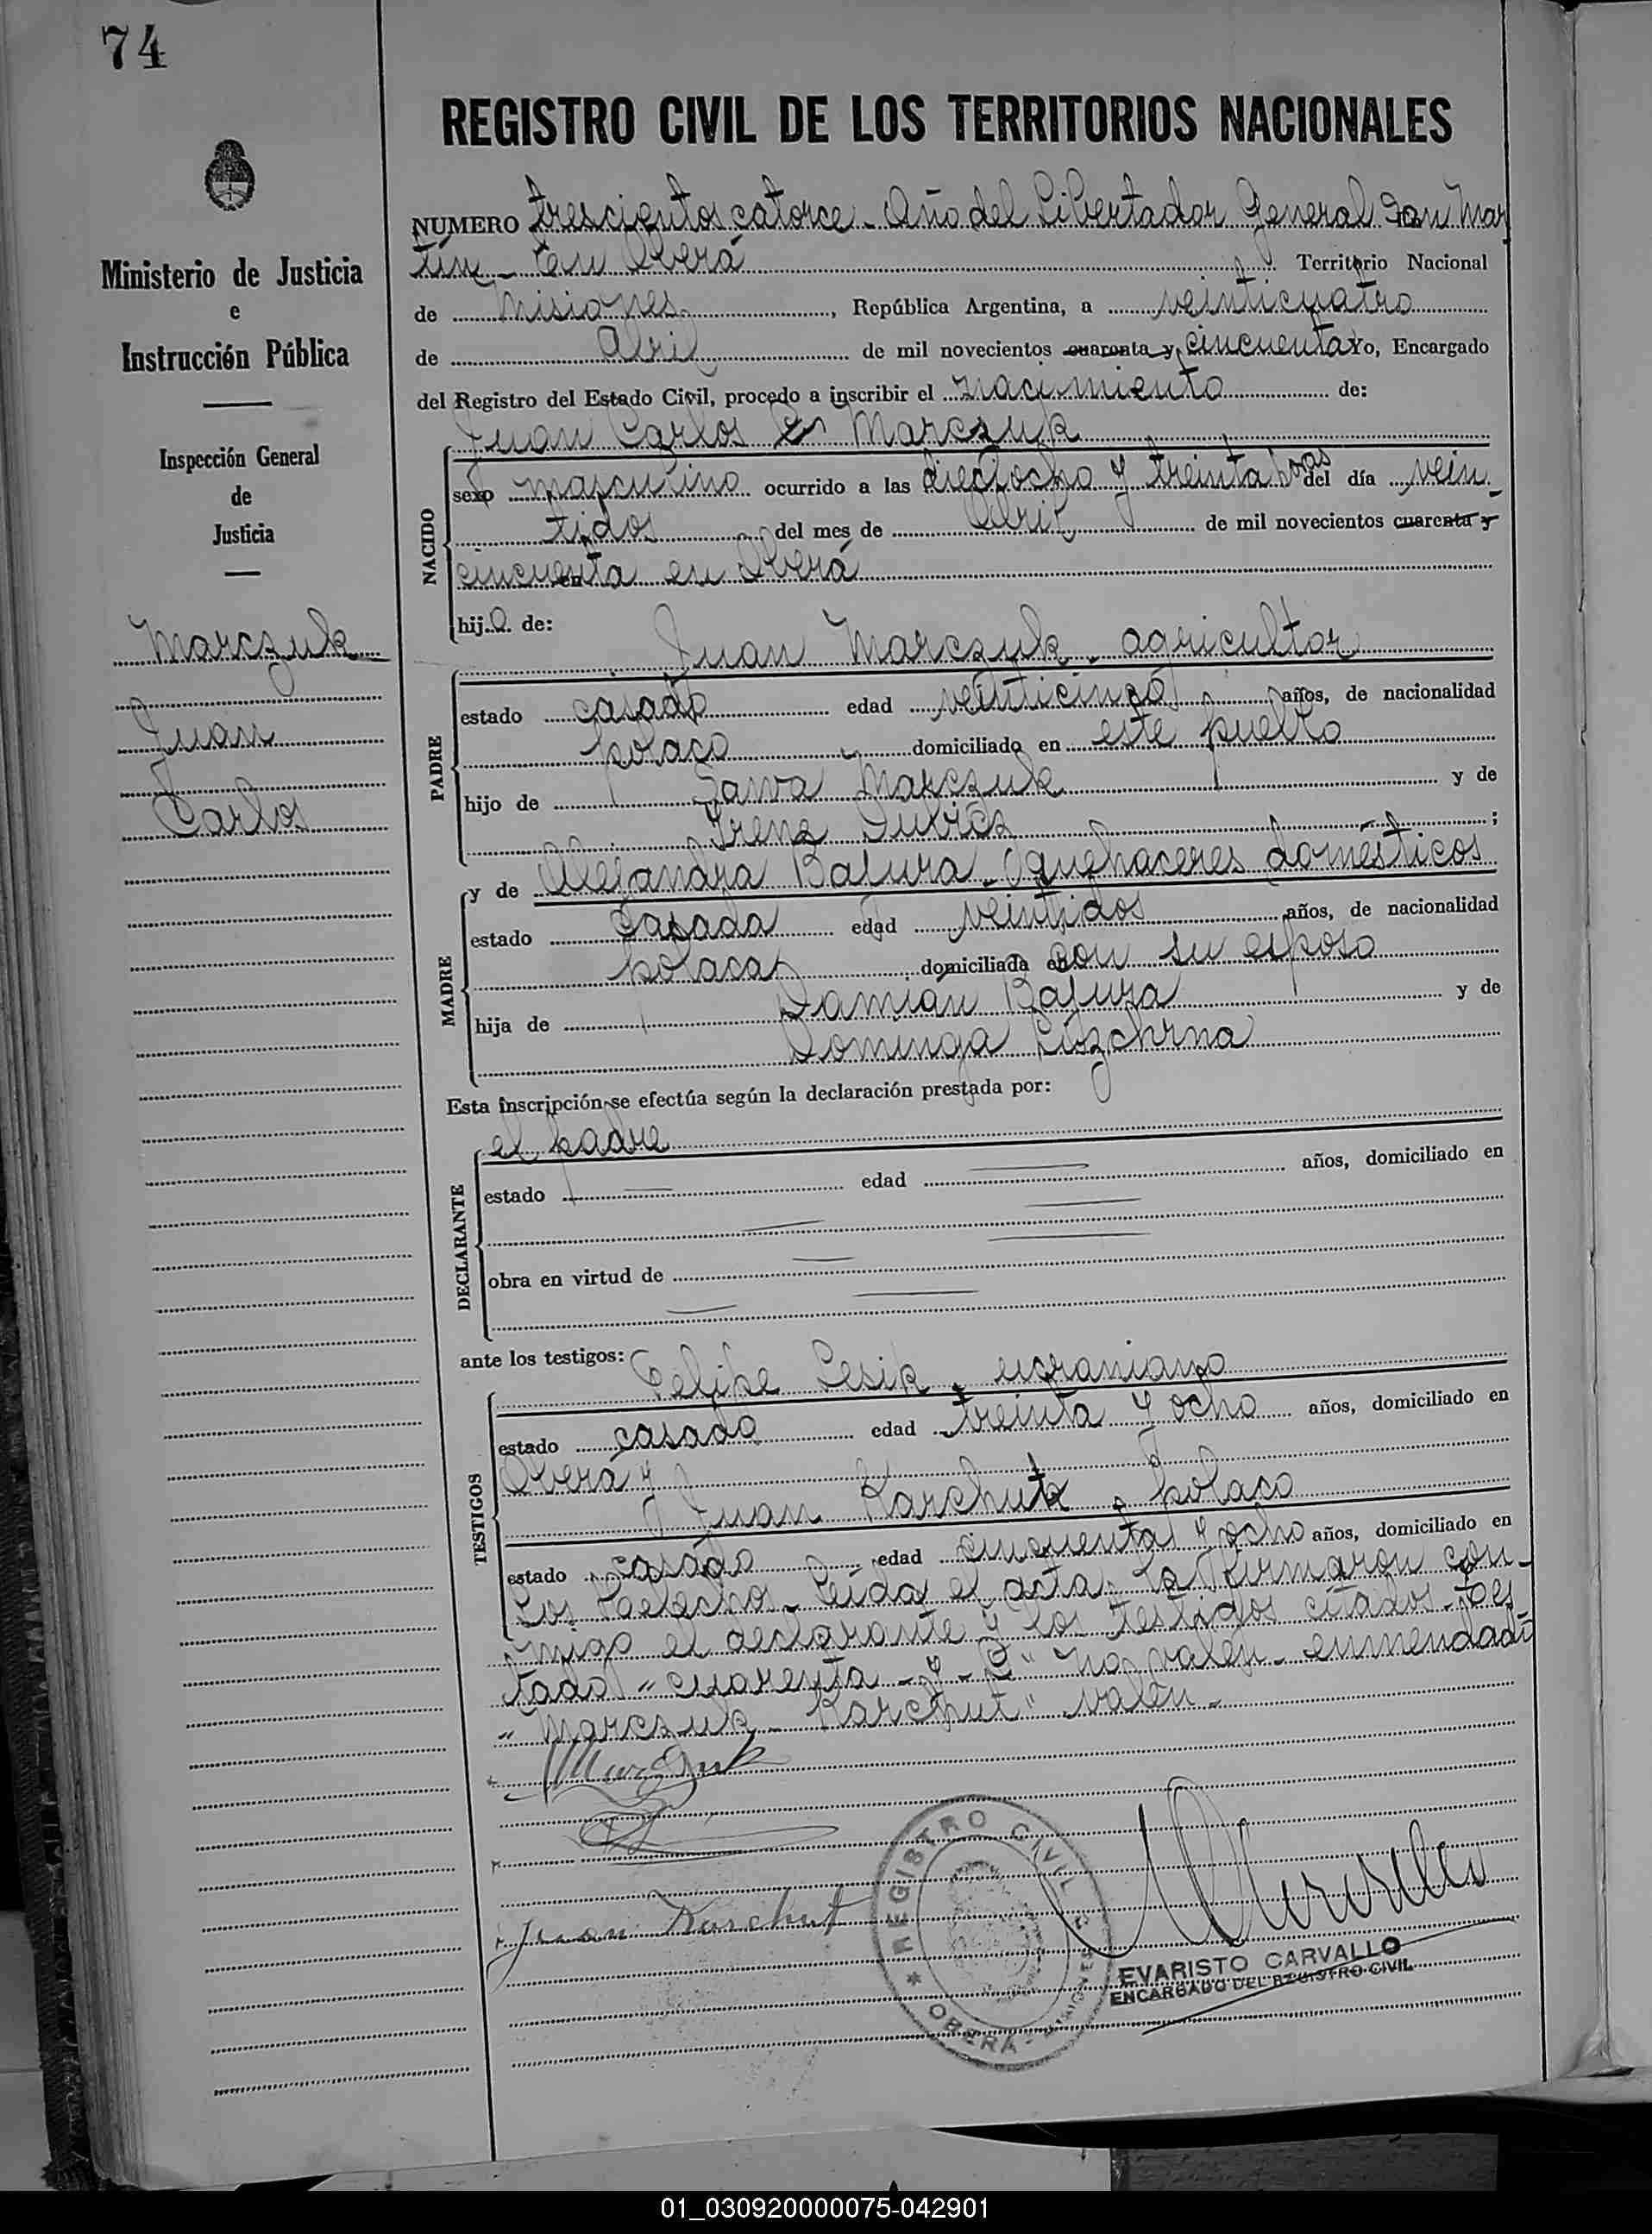 74
REGISTRO CIVIL DE LOS TERRITORIOS NACIONALES
Ministerio de Justicia
e
Instrucción Pública
Inspección General
de
Justicia
Marczuk
Juan
Carlos
NUMERO trescientos catorce - Año del Libertador General San Mar
tín - En Oberá Territorio Nacional
de Misiones, República Argentina, a veinticuatro
de Abril de mil novecientos cuarenta y cincuenta Yo, Encargado
del Registro del Estado Civil, procedo a inscribir el nacimiento de:
Juan Carlos Marczuk
NACIDO
sexo masculino ocurrido a las dieciocho y treinta horas del día vein-
tidos del mes de Abril de mil novecientos cuarenta y
cincuenta en Oberá
hijo de:
Juan Marczuk - agricultor
PADRE
estado casado edad veinticinco años, de nacionalidad
polaco domiciliado en este pueblo
hijo de Sawa Marczuk y de
Irene ;
y de Alejandra Bajura - quehaceres domésticos
MADRE
estado casada edad veintidos años, de nacionalidad
polaca domiciliada con su esposo
hija de Damian Bajura y de
Dominga
Esta inscripción se efectúa según la declaración prestada por:
el padre
DECLARANTE
estado — edad — años, domiciliado en
obra en virtud de —
ante los testigos: Felipe Lesik, ucraniano
TESTIGOS
estado casado edad treinta y ocho años, domiciliado en
Oberá y
Juan Karchut, polaco
estado casado edad cincuenta y ocho años, domiciliado en
Los Helechos - Leida el acta, la firmaron con-
migo el declarante y los testigos citados - Tes-
tado "cuarenta - y - " no valen - enmendado
"Marczuk - Karchut" valen -
Marczuk
Juan Karchut
REGISTRO CIVIL
OBERÁ - MISIONES
EVARISTO CARVALLO
ENCARGADO DEL REGISTRO CIVIL
01_030920000075-042901